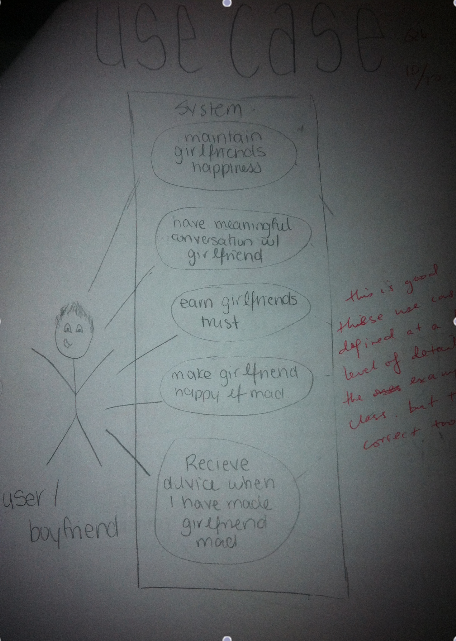 use case
System
maintain
girlfriends
happiness
have meaningful
conversation w/
girlfriend
earn girlfriends
trust
make girlfriend
happy if mad
Recieve
advice when
I have made
girlfriend
mad
user /
boyfriend
this is good
these use
defined at a
level of
the
class. but
correct too